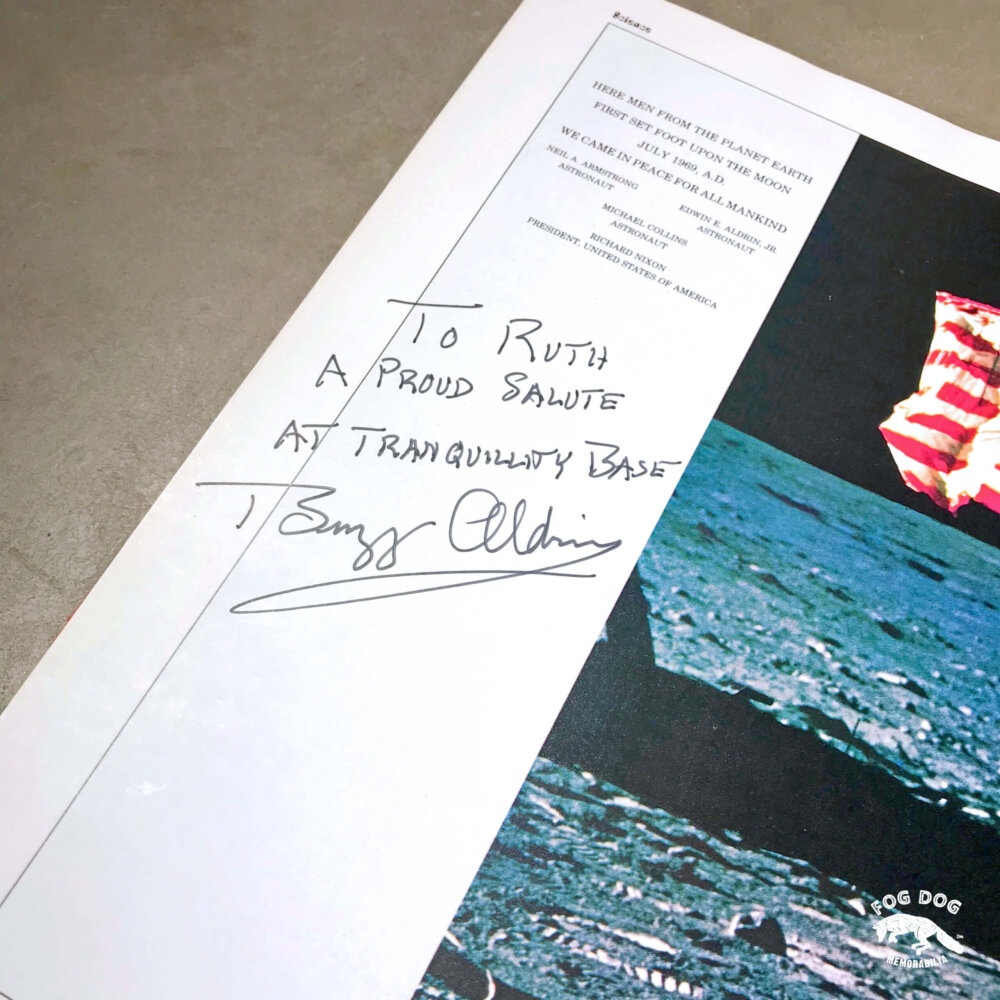 Science
HERE MEN FROM THE PLANET EARTH
FIRST SET FOOT UPON THE MOON
JULY 1969, A.D.
WE CAME IN PEACE FOR ALL MANKIND
NEIL A. ARMSTRONG
ASTRONAUT
EDWIN E. ALDRIN, JR.
ASTRONAUT
MICHAEL COLLINS
ASTRONAUT
RICHARD NIXON
PRESIDENT, UNITED STATES OF AMERICA
TO RUTH
A PROUD SALUTE
AT TRANQUILLITY BASE
Buzz Aldrin
FOG DOG
MEMORABILIA